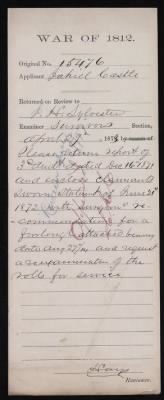 WAR OF 1812.
Original No. 15476
Applicant Jahiel Castle
Returned on Review to
J. H. Sylvester
Examiner Survivors Section,
April 1878, by reason of
Please return report of
3d Aud. dated Dec 16th 1871
and enclose claimants
sworn statement of June 28th
1872, with Surgeons re-
commendation for a
attached bearing
date Aug 27/74 and request
a reexamination of the
rolls for service
Reviewer.